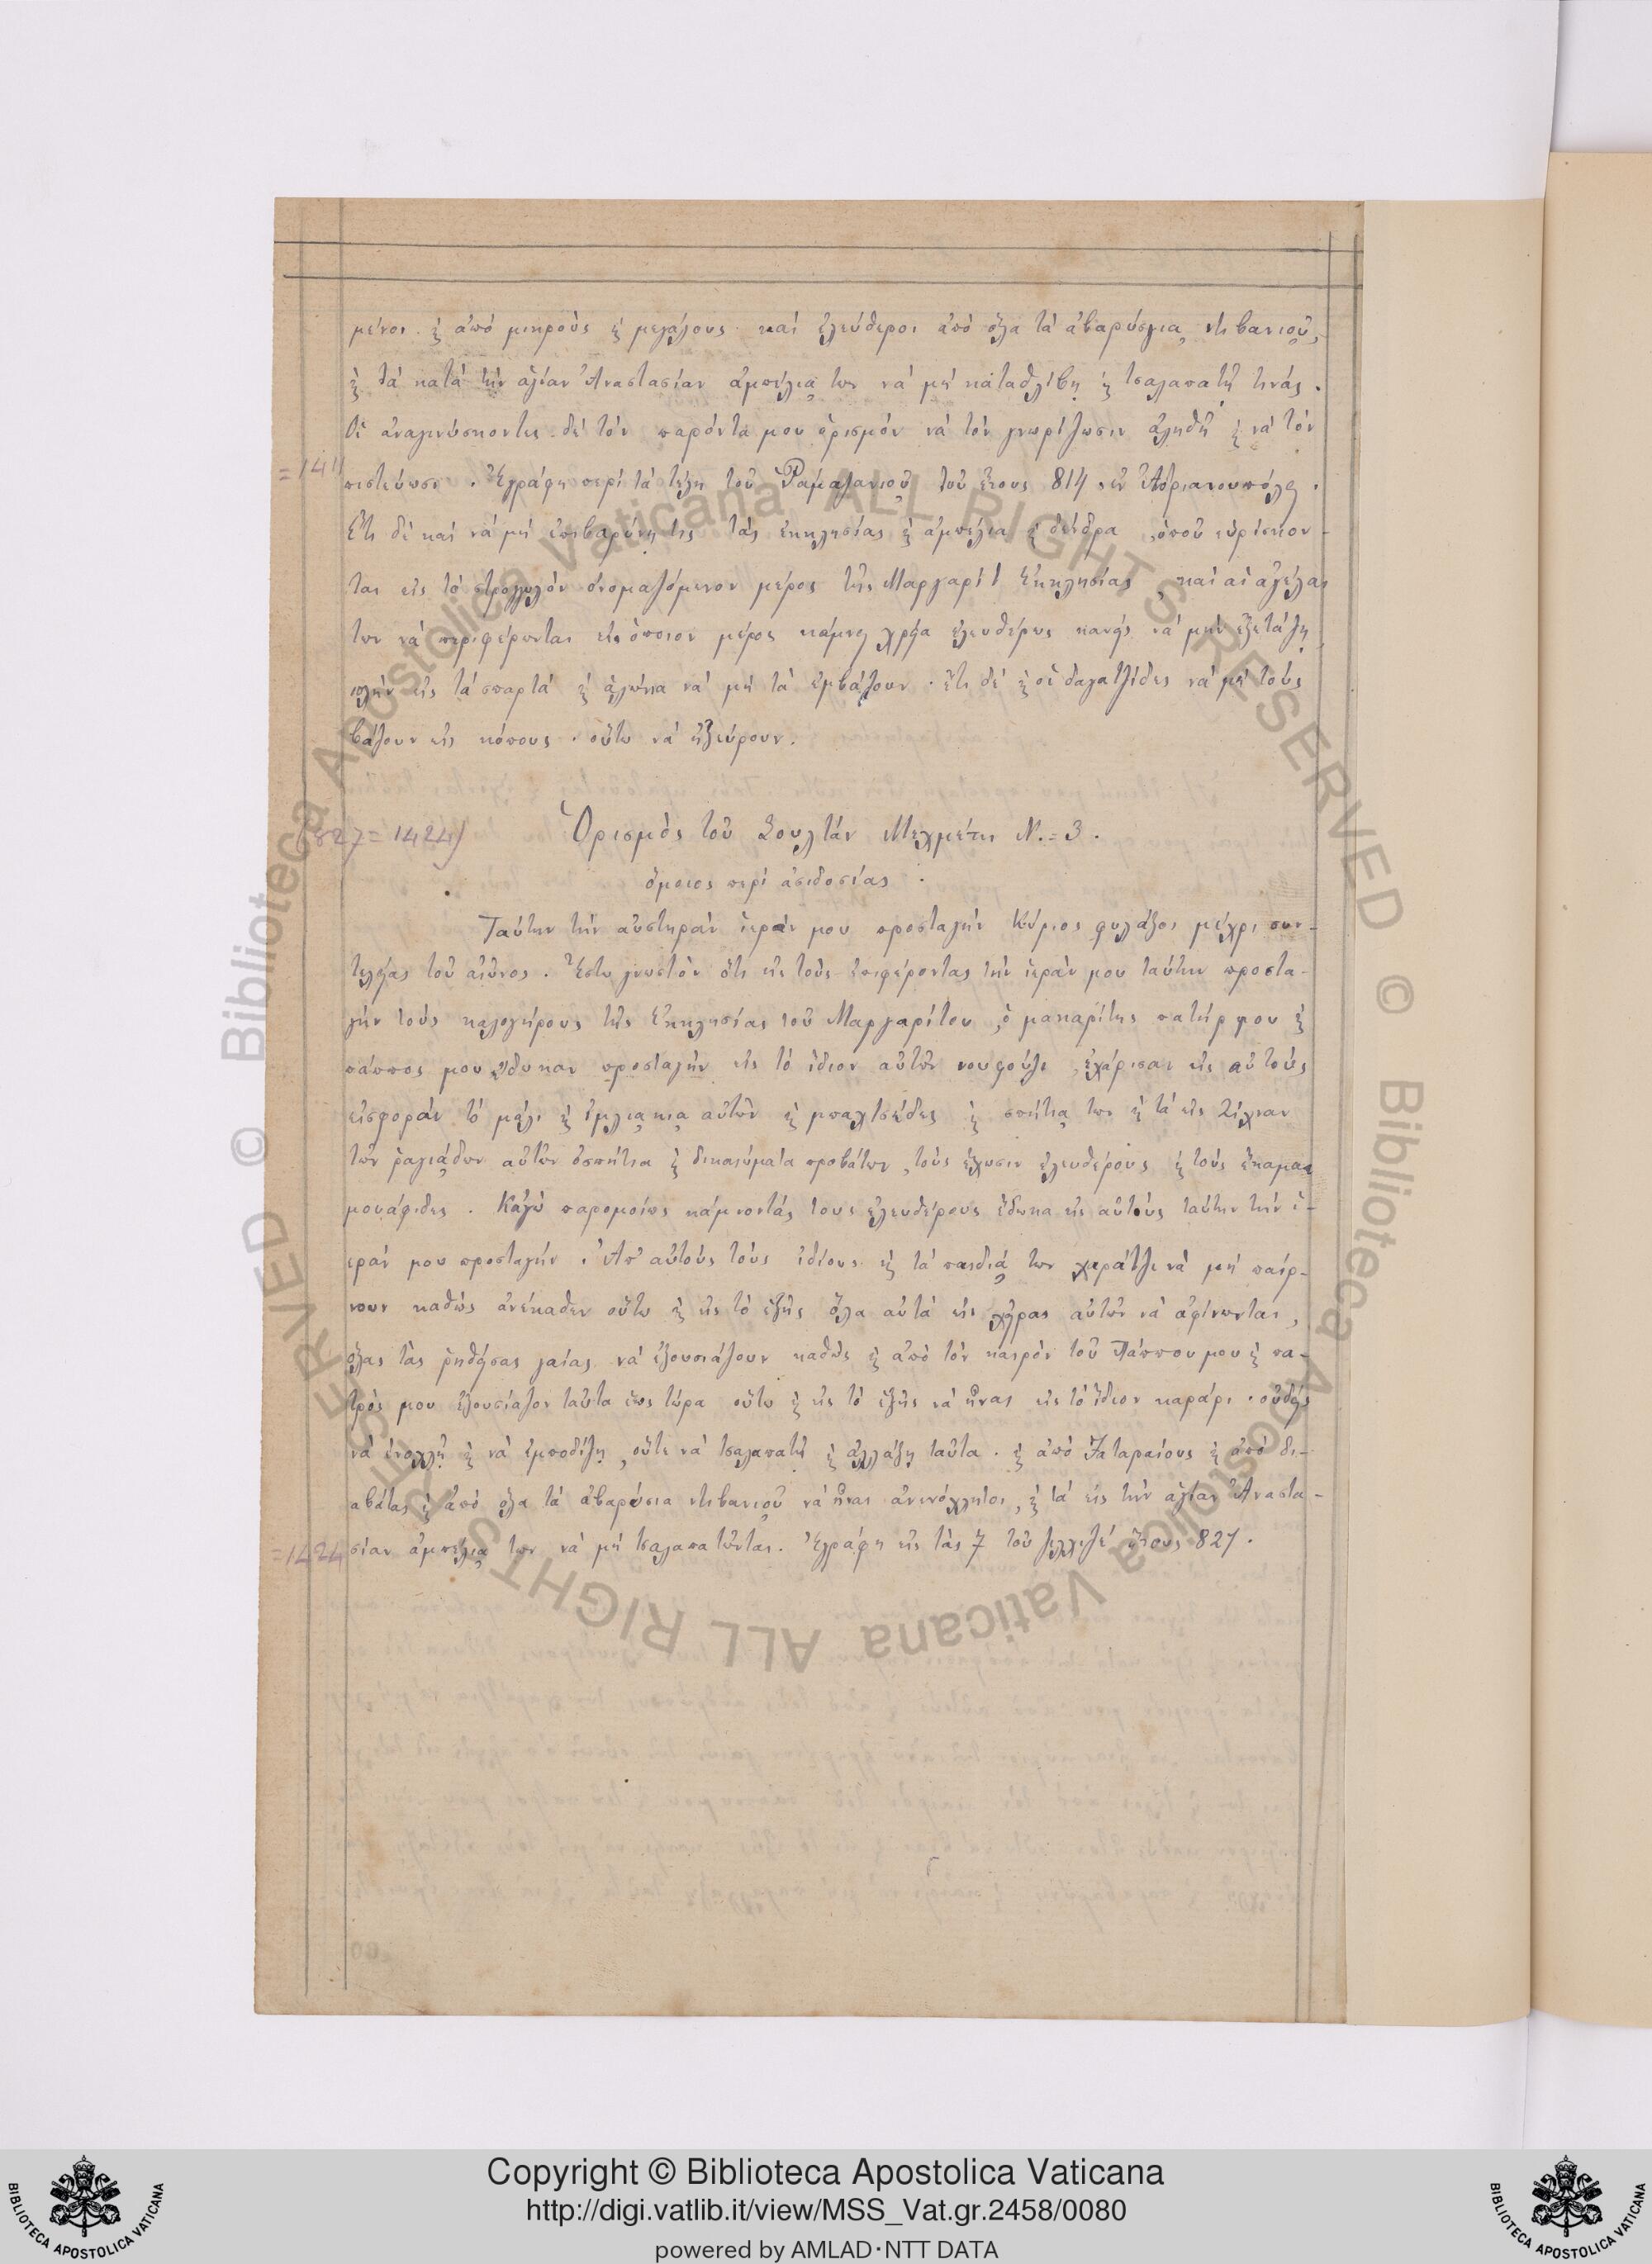 μένοι. ϗ ἀπὸ μικροὺς ϗ μεγάλους. καὶ ἐλεύθεροι ἀπὸ ὅλα τὰ ἀβαρύσμια ντιβανιοῦ,
ϗ τὰ κατὰ τὴν ἁγίαν Ἀναστασίαν ἀμπέλια των νὰ μὴ καταθλίβῃ ϗ τσαλαπατῇ τινάς.
Οἱ ἀναγινώσκοντες δὲ τὸν παρόντα μου ὁρισμὸν νὰ τὸν γνωρίζωσιν ἀληθῆ ϗ νὰ τὸν
=1411 πιστεύωσι. Ἐγράφη περὶ τὰ τέλη τοῦ Ῥαμαζανιοῦ τοῦ ἔτους 814 ἐν Ἀδριανουπόλει.
Ἔτι δὲ καὶ νὰ μὴ ἐπιβαρύνῃ τις τὰς ἐκκλησίας ϗ ἀμπέλια ϗ δένδρα, ὁποῦ εὑρίσκον-
ται εἰς τὸ στρογγυλὸν ὀνομαζόμενον μέρος τῆς Μαργαρίτ Ἐκκλησίας, καὶ αἱ ἀγέλαι
των νὰ περιφέρωνται εἰς ὁποῖον μέρος κάμνει χρεία ἐλευθέρως κανεὶς νὰ μὴν ἐξετάζῃ
πλὴν εἰς τὰ σπαρτὰ ϗ ἁλώνια νὰ μὴ τὰ ἐμβάζουν. ἔτι δὲ ϗ οἱ δαγατζίδες νὰ μὴ τοὺς
βάζουν εἰς κόπους. οὕτω νὰ ἠξεύρουν.
(827=1424) Ὁρισμὸς τοῦ Σουλτὰν Μεχμέτη Ν.=3.
ὅμοιος περὶ ἀσιδοσίας.
Ταύτην τὴν αὐστηρὰν ἱεράν μου προσταγὴν Κύριος φυλάξοι μέχρι συν-
τελείας τοῦ αἰῶνος. Ἔστω γνωστὸν ὅτι εἰς τοὺς ἐπιφέροντας τὴν ἱεράν μου ταύτην προστα-
γὴν τοὺς καλογήρους τῆς Ἐκκλησίας τοῦ Μαργαρίτου, ὁ μακαρίτης πατήρ μου ϗ
πάππος μου ἔδωκαν προσταγὴν εἰς τὸ ἴδιον αὐτῶν νουφούζι, ἐχάρισαν εἰς αὐτοὺς
εἰσφορὰν τὸ μέλι ϗ ἐμλιάκια αὐτῶν ϗ μπαχτσέδες ϗ σπήτια των ϗ τὰ εἰς Ζίχναν
τῶν ῥαγιάδων αὐτῶν ὁσπήτια ϗ δικαιώματα προβάτων, τοὺς ἔχωσιν ἐλευθέρους ϗ τοὺς ἔκαμαν
μουάφιδες. Κἀγὼ παρομοίως κάμνοντάς τους ἐλευθέρους ἔδωκα εἰς αὐτοὺς ταύτην τὴν ἱ-
εράν μου προσταγήν. Ἀπ' αὐτοὺς τοὺς ἰδίους ϗ τὰ παιδιά των χαράτζι νὰ μὴ παίρ-
νουν καθὼς ἀνέκαθεν οὕτω ϗ εἰς τὸ ἑξῆς ὅλα αὐτὰ εἰς χεῖρας αὐτῶν νὰ ἀφίνωνται,
ὅλας τὰς ῥηθείσας γαίας νὰ ἐξουσιάζουν καθὼς ϗ ἀπὸ τὸν καιρὸν τοῦ Πάππου μου ϗ πα-
τρός μου ἐξουσίαζον ταῦτα ἕως τώρα οὕτω ϗ εἰς τὸ ἑξῆς νὰ ἦναι εἰς τὸ ἴδιον καράρι. οὐδεὶς
νὰ ἐνοχλῇ ϗ νὰ ἐμποδίζῃ, οὔτε νὰ τσαλαπατῇ ϗ ἀλλάζῃ ταῦτα. ϗ ἀπὸ Ταταραίους ϗ ἀπὸ δι-
αβάτας ϗ ἀπὸ ὅλα τὰ ἀβαρύσια ντιβανιοῦ νὰ ἦναι ἀνενόχλητοι, ϗ τὰ εἰς τὴν ἁγίαν Ἀναστα-
=1424 σίαν ἀμπέλια των νὰ μὴ τσαλαπατῶνται. Ἐγράφη εἰς τὰς 7 τοῦ ζιλχιτζὲ ἔτους 827.
Copyright © Biblioteca Apostolica Vaticana
http://digi.vatlib.it/view/MSS_Vat.gr.2458/0080
powered by AMLAD·NTT DATA